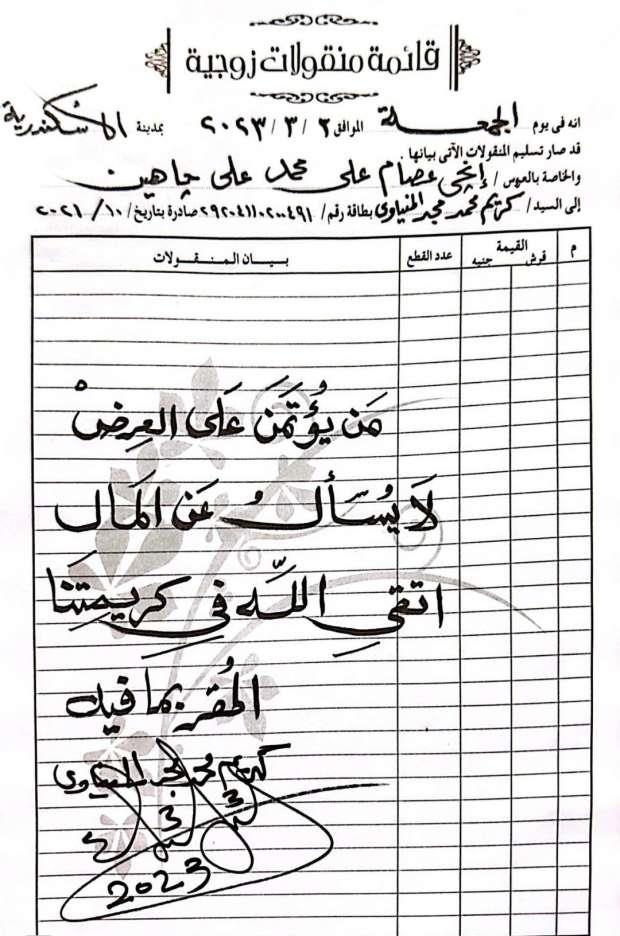 قائمة منقولات زوجية
انه فى يوم الجمعة الموافق ٣ / ٣ / ٢٠٢٣ بمدينة الاسكندرية
قد صار تسليم المنقولات الآتى بيانها
والخاصة بالعروس / إنجى عصام على محمد على چاهين
إلى السيد / كريم محمد مجد المنياوى بطاقة رقم / صادرة بتاريخ / ١٠ / ٢٠٢١
م القيمة قرش جنيه عدد القطع بيان المنقولات
مَن يُؤتَمَنَ عَلَى العِرضْ
لَا يُسَأَلُ عَن المَال
اتقىِ اللَّه فىِ كريمِتَنَا
المُقر بما فيه
كريم محمد مجد المنياوى
3
3
2023